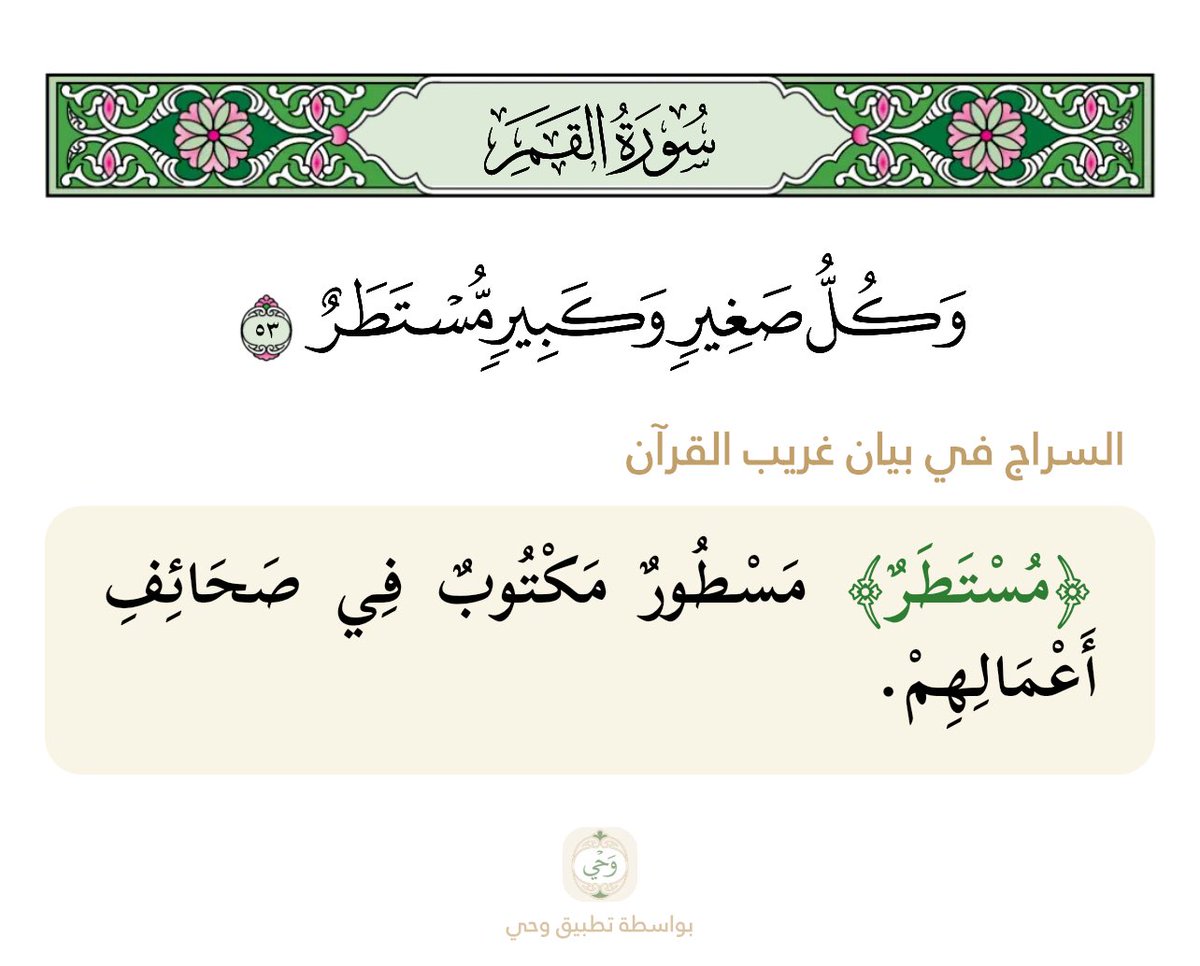 سُورَةُ القَمَرِ
وَكُلُّ صَغِيرٖ وَكَبِيرٖ مُّسۡتَطَرٌ ٥٣
السراج في بيان غريب القرآن
﴿مُسْتَطَرٌ﴾ مَسْطُورٌ مَكْتُوبٌ فِي صَحَائِفِ
أَعْمَالِهِمْ.
وَحْي
بواسطة تطبيق وحي